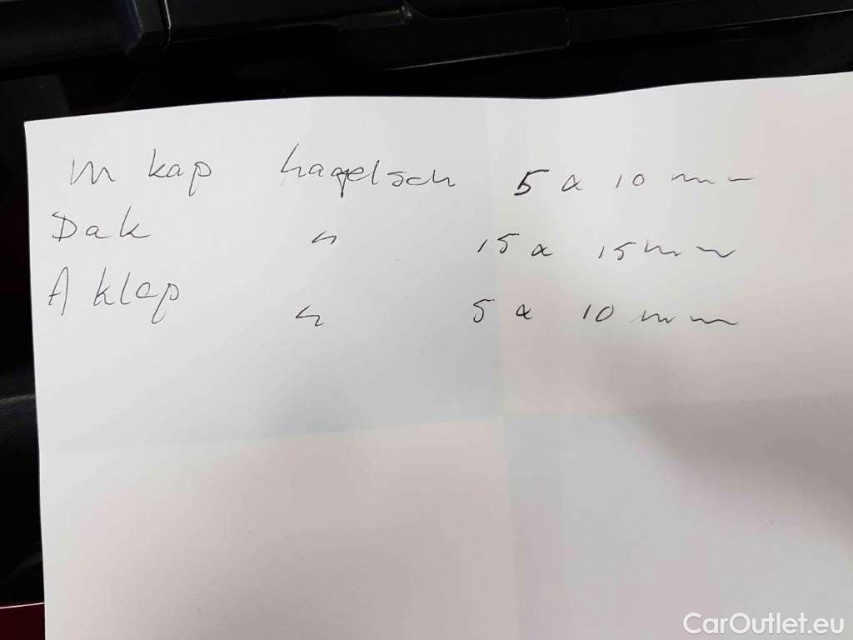 m kap hagelsch 5 a 10 mm
Dak " 15 a 15 mm
A klep " 5 a 10 mm
CarOutlet.eu